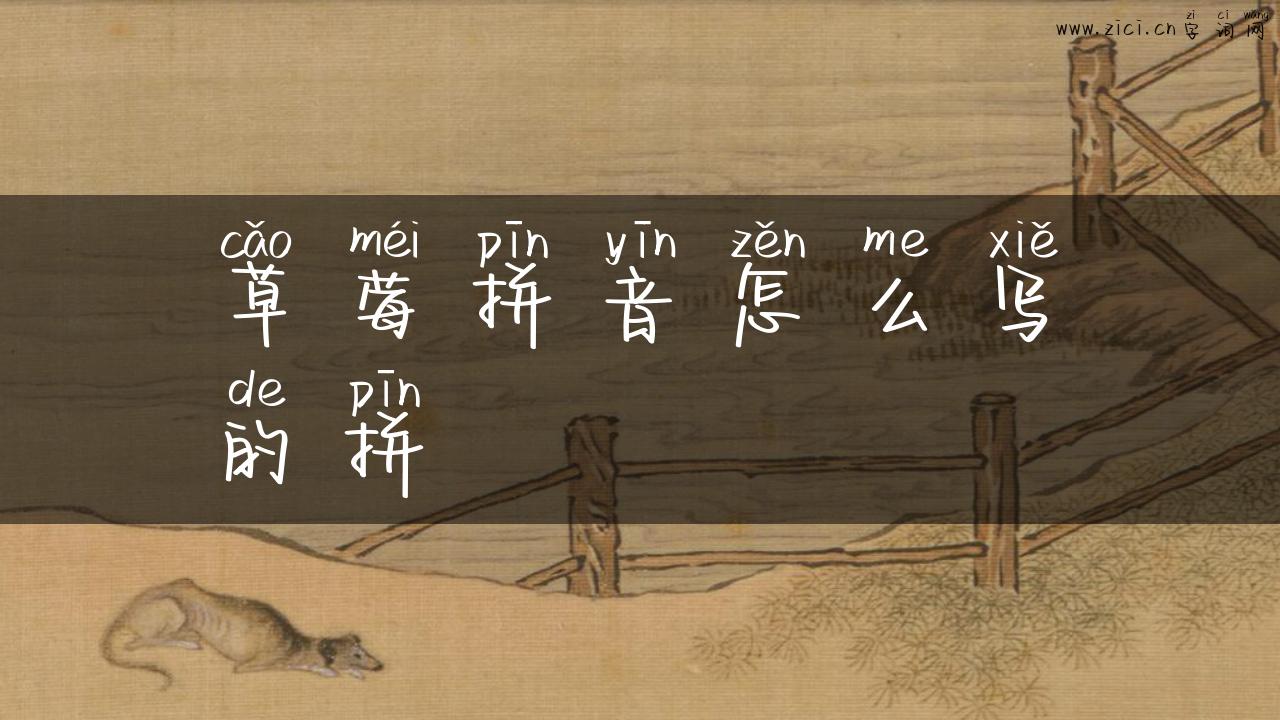 zi ci wang
www.zici.cn 字词网
cǎo méi pīn yīn zěn me xiě
草莓拼音怎么写
de pīn
的拼